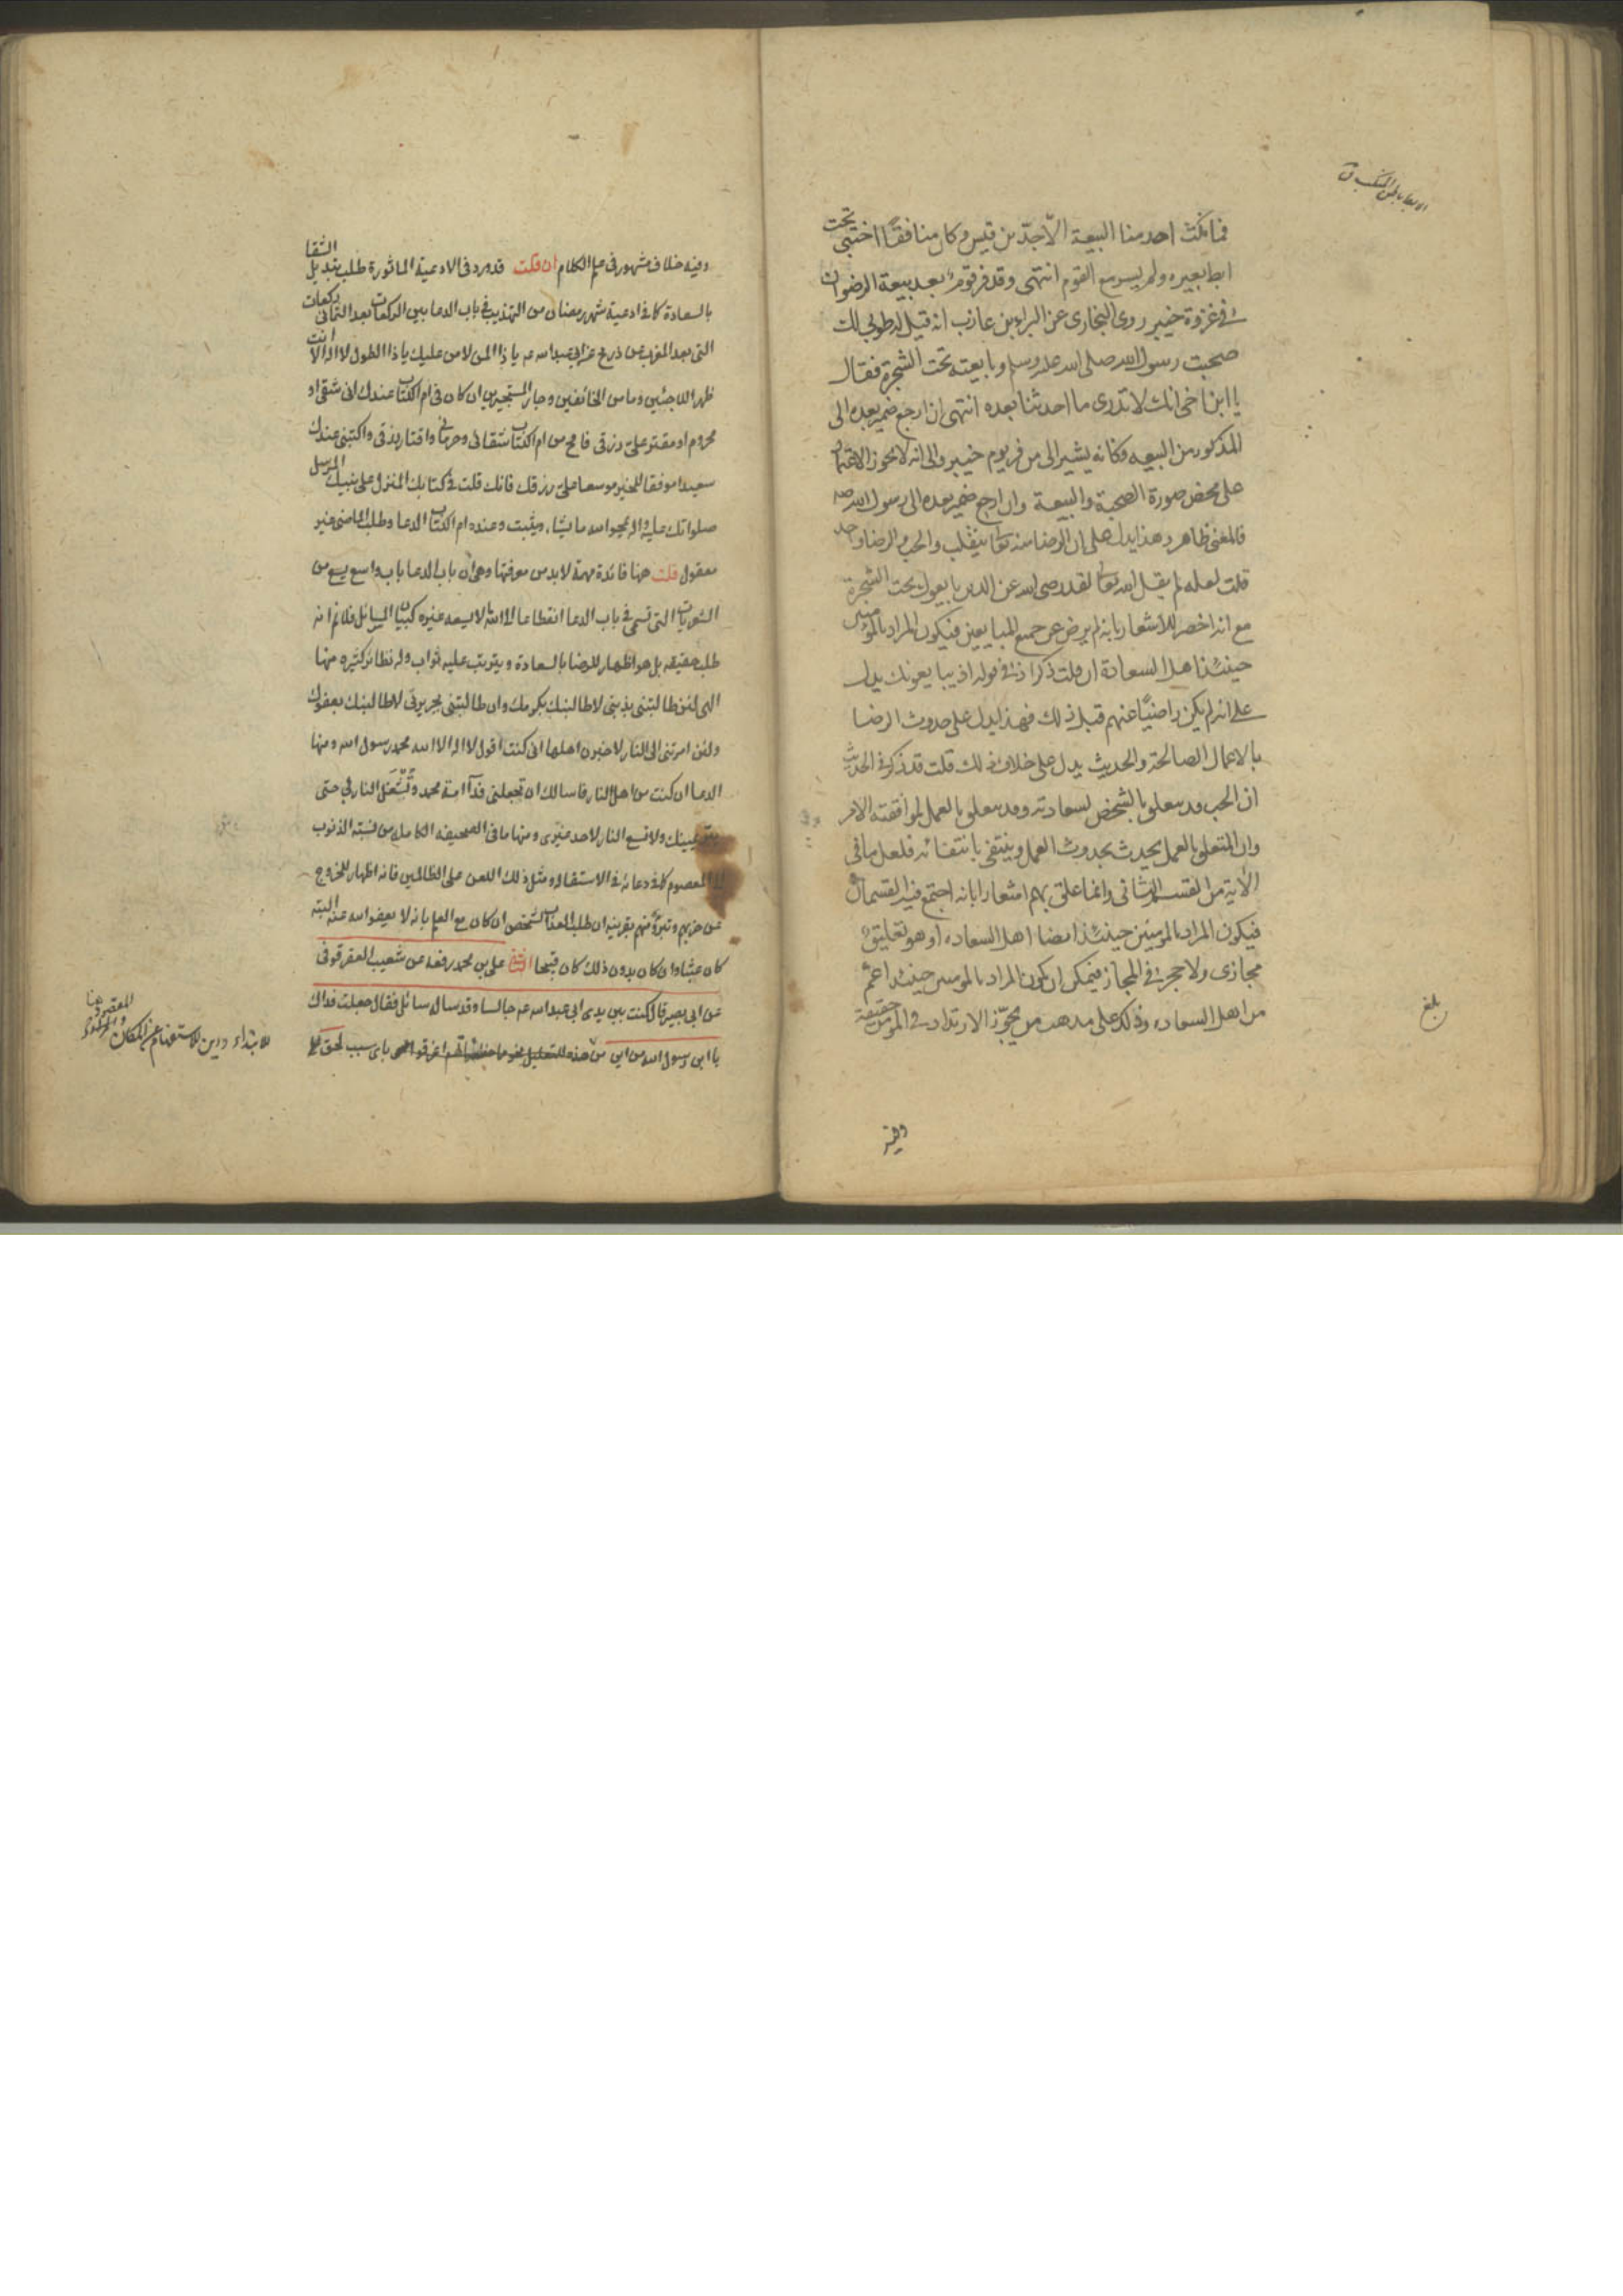 فما نكث احد منا البيعة الّا جدّ بن قيس وكان منافقًا اختبى تحت
ابط بعيره ولم يسر مع القوم انتهى وقد فر قوم بعد بيعة الرضوان
في غزوة خيبر روى البخارى عن البراء بن عازب انه قيل له طوبى لك
صحبت رسول الله صلى الله عليه وسلم وبايعته تحت الشجرة فقال
يا ابن اخى انك لا تدرى ما احدثنا بعده انتهى ان ارجع ضمير بعده الى
المذكور من البيعه فكانه يشير الى من فر يوم خيبر والى انه لا يجوز الاعتماد
على محض صورة الصحبة والبيعة وان ارجع ضمير بعده الى رسول الله صه
فالمعنى ظاهر وهذا يدل على ان الرضا منه تعالى ينقلب والحب والرضا واحد
قلت لعله لم يقل الله تعالى لقد رضى الله عن الذين بايعوك تحت الشجرة
مع انه اخصر للاشعار بانه لم يرض عن جميع المبايعين فيكون المراد بالمؤمنين
حينئذ اهل السعادة ان قلت ذكر اذ في قوله اذ يبايعونك يدل
على انه لم يكن راضيًا عنهم قبل ذلك فهذا يدل على حدوث الرضا
بالاعمال الصالحة والحديث يدل على خلاف ذلك قلت قد ذكر في الحديث
ان الحب قد يتعلق بالشخص لسعادته وقد يتعلق بالعمل لموافقته الامر
وان المتعلق بالعمل يحدث بحدوث العمل وينتفى بانتفائه فلعل ما في
الآية من القسم الثانى وانما علق بهم اشعارا بانه اجتمع فيه القسمان
فيكون المراد بالمومنين حينئذ ايضا اهل السعاده او هو تعليق
مجازى ولا حجر في المجاز فيمكن ان يكون المراد بالمومنين حينئذ اعم
من اهل السعاده وذلك على مذهب من يجوّز الارتداد في المومن حقيقة
بلغ
وفيه
وفيه خلاف مشهور في علم الكلام ان قلت قد ورد في الادعية الماثورة طلب تبديل الشقا
بالسعادة كما في ادعية شهر رمضان من التهذيب في باب الدعا بين الركعات بعد الثماني ركعات
التى بعد المغرب عن ذريح عن ابى عبد الله عه يا ذا المن لا من عليك يا ذا الطول لا اله الا انت
ظهر اللاجئين ومامن الخائفين وجار المستجيرين ان كان في ام الكتاب عندك انى شقى او
محروم او مقتر على رزقى فامح من ام الكتاب شقائى وحرمانى واقتار رزقى واكتبنى عندك
سعيدا موفقا للخير موسعا على رزقك فانك قلت في كتابك المنزل على نبيك المرسل
صلواتك عليه واله يمحو الله ما يشاء ويثبت وعنده ام الكتاب الدعا وطلب الماضى غير
معقول قلت هنا فائدة مهمة لا بد من معرفتها وهى ان باب الدعا باب واسع يسع من
التى تسمى في باب الدعا انقطاعا الى الله ما لا يسعه غيره
طلب حقيقه بل هو اظهار للرضا بالسعادة ويترتب عليه ثواب وله نظائر كثيره منها
الهى لئن طالبتنى بذنبى لاطالبنك بكرمك وان طالبتنى بجريرتى لاطالبنك بعفوك
ولئن امرتنى الى النار لاخبرن اهلها انى كنت اقول لا اله الا الله محمد رسول الله ومنها
الدعا ان كنت من اهل النار فاسالك ان تجعلنى فدآ امة محمد وتُشْعَل النار بي حتى
يمينك ولا تسع النار لاحد غيرى ومنها ما في الصحيفه الكامله من نسبته الذنوب
الى المعصوم كما في دعائه في الاستقاله ومثل ذلك اللعن على الظالمين فانه اظهار للخروج
عن حزبهم وتبرؤ منهم بقرينه ان طلب العذاب لشخص ان كان مع العلم بانه لا يعفو الله عنه البته
كان عبثا وان كان بدون ذلك كان قبيحا على بن محمد رفعه عن شعيب العقرقوفى
عن ابى بصير قال كنت بين يدى ابى عبد الله عه جالسا وقد ساله سائل فقال جعلت فداك
يا ابن رسول الله من اين من هذه للتعليل نحو مما خطيئاتهم اغرقوا اى باى سبب لحق